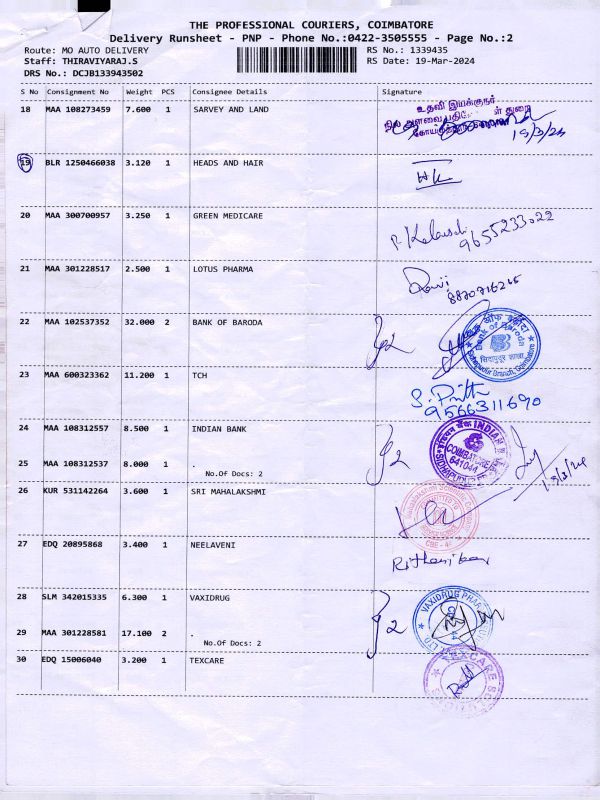 THE PROFESSIONAL COURIERS, COIMBATORE
Delivery Runsheet - PNP - Phone No.:0422-3505555 - Page No.:2
Route: MO AUTO DELIVERY RS No.: 1339435
Staff: THIRAVIYARAJ.S RS Date: 19-Mar-2024
DRS No.: DCJB133943502
S No Consignment No Weight PCS Consignee Details Signature
18 MAA 108273459 7.600 1 SARVEY AND LAND
உதவி இயக்குநர்
19/3/24
19 BLR 1250466038 3.120 1 HEADS AND HAIR
20 MAA 300700957 3.250 1 GREEN MEDICARE
9655233022
21 MAA 301228517 2.500 1 LOTUS PHARMA
Ravi
8870716265
22 MAA 102537352 32.000 2 BANK OF BARODA
Bank of Baroda
23 MAA 600323362 11.200 1 TCH
9566311690
24 MAA 108312557 8.500 1 INDIAN BANK
INDIAN
COIMBATORE
641044
25 MAA 108312537 8.000 1 .
No.Of Docs: 2
19/3/24
26 KUR 531142264 3.600 1 SRI MAHALAKSHMI
27 EDQ 20895868 3.400 1 NEELAVENI
28 SLM 342015335 6.300 1 VAXIDRUG
VAXIDRUG
29 MAA 301228581 17.100 2 .
No.Of Docs: 2
30 EDQ 15006040 3.200 1 TEXCARE
TEXCARE